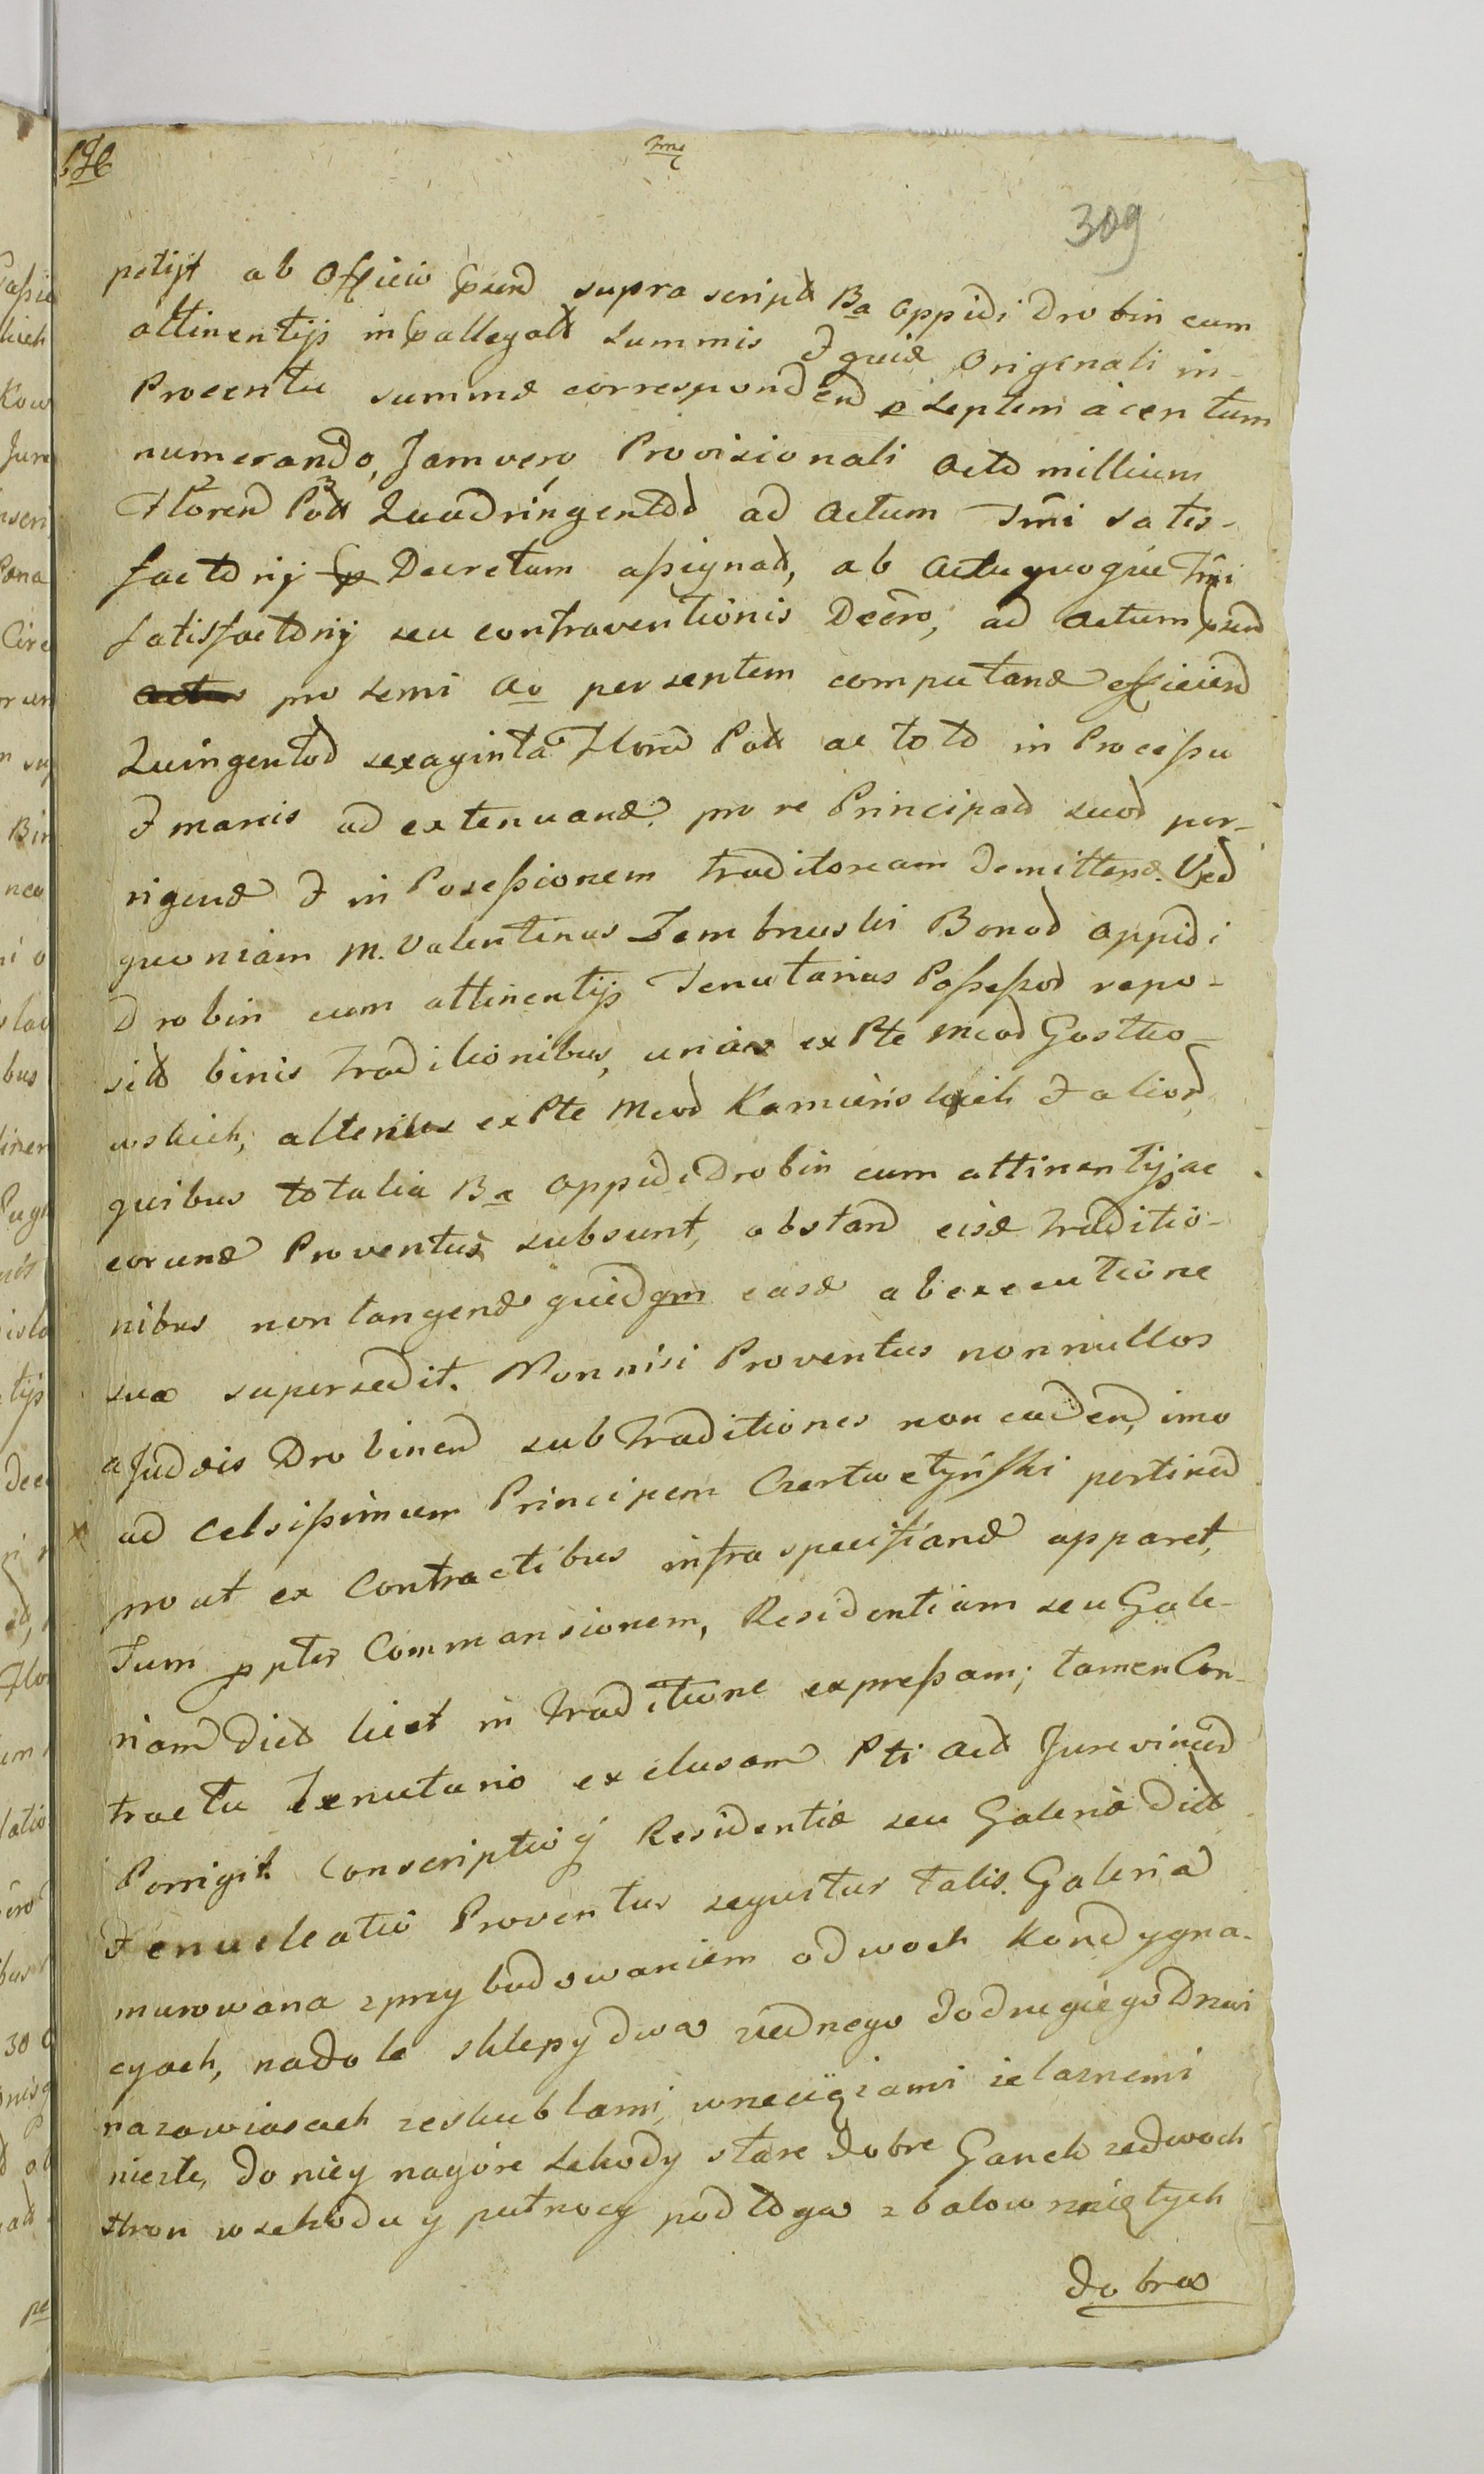 309
petijt ab Officio supra script Ba Oppidi Drobin cum
attinentijs in allegatt Summis Originali in-
Procentu summæ correspondend Septem a centum
numerando, Jam vero Provisionali Octo millium
Floren Poll Quadringento ad Actum Tmi satis-
factorij Decretum assignat, ab Actu quoque Tmi
satisfactorij seu contraventionis Decro, ad Actum
pro Semi Ao per septem computand efficien
Quingento sexaginta Flore Poll ac toto in Processu
marcis ad extenuand pro re Principali suo por-
rigend & in Possessionem traditoream demittend. Sed
quoniam M. Valentinus Zembruski Bono Oppidi
Drobin cum attinentijs Tenutarius Possessor repo-
sit binis traditionibus, una ex Pte Mco Gostko-
wskich, ex Pte Mco Kamienskich & alior
quibus totalia Ba Oppidi Drobin cum attinentijs ac
eorund Proventus subsunt, obstan eisd traditio-
nibus non tangend quidqm easd ab executione
sua supersedit. Non nisi Proventus nonnullos
a Judæis Drobinen sub traditiones non caden, imo
ad Celsissimum Principem Czertwetyński pertinen
prout ex Contractibus infra specifiand apparet,
Tum ppter Commansionem, Residentiam seu Gale-
riam dict licet in traditione expressam; tamen Con-
tractu Tenutario exclusam Pti Act Jurevincen
Porrigit. Conscriptio y Residentiæ seu Galeria dict
& enucleatio Proventus sequitur talis. Galeria
murowana z przybudowaniem o dwoch Kondygna-
cyach, na dole sklepy dwa z iednego do drugiego Drzwi
na zawiasach ze skublami, wrzeciądzami żelaznemi
niezłe, do niey na gore Schody stare dobre Ganek ze dwoch
stron wschodu y pułnocy podłoga z balow rzniętych
dobra